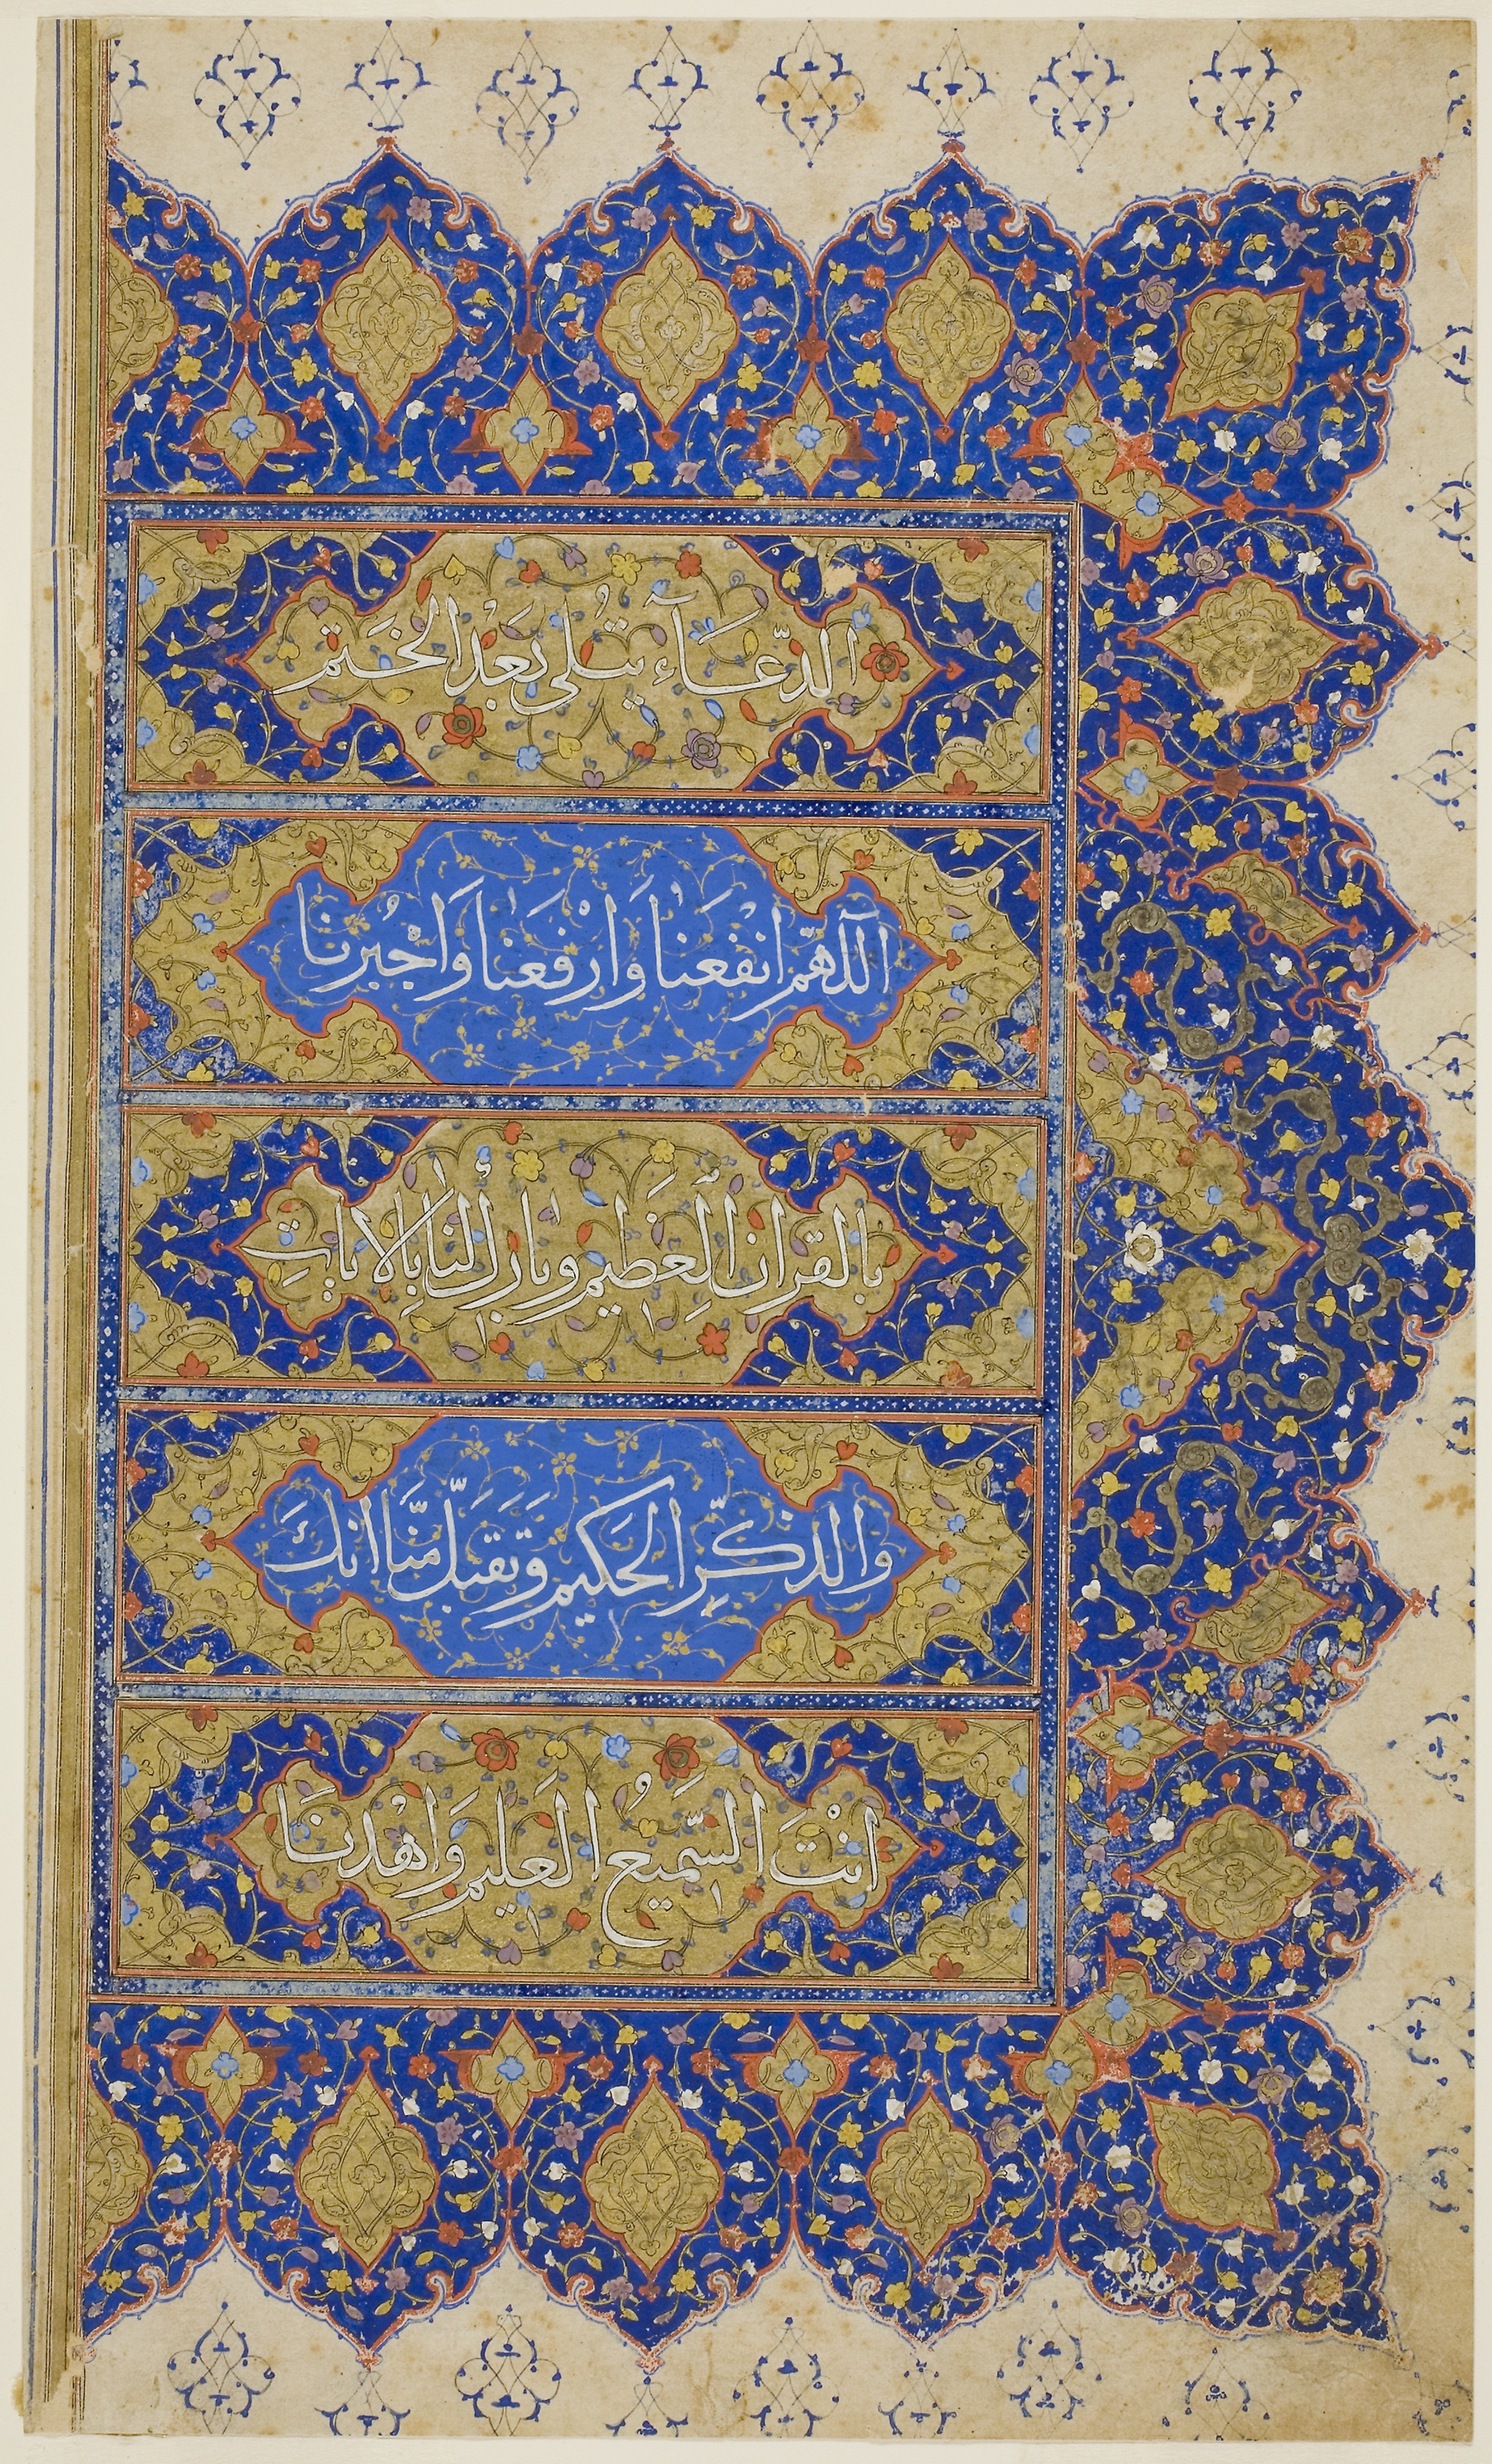 الدّعَآء يتلى بَعْد الختَم
اللّهّم انفَعْنَا وَارْفَعْنَا وَاجْبُرنَا
بالقران العَظيم وبارك لنا بالايات
والذكرِ الحَكيم وَتَقَبَّل مِنَّا انكَ
انْتَ السَّميعُ العَليم وَاهْدنَا